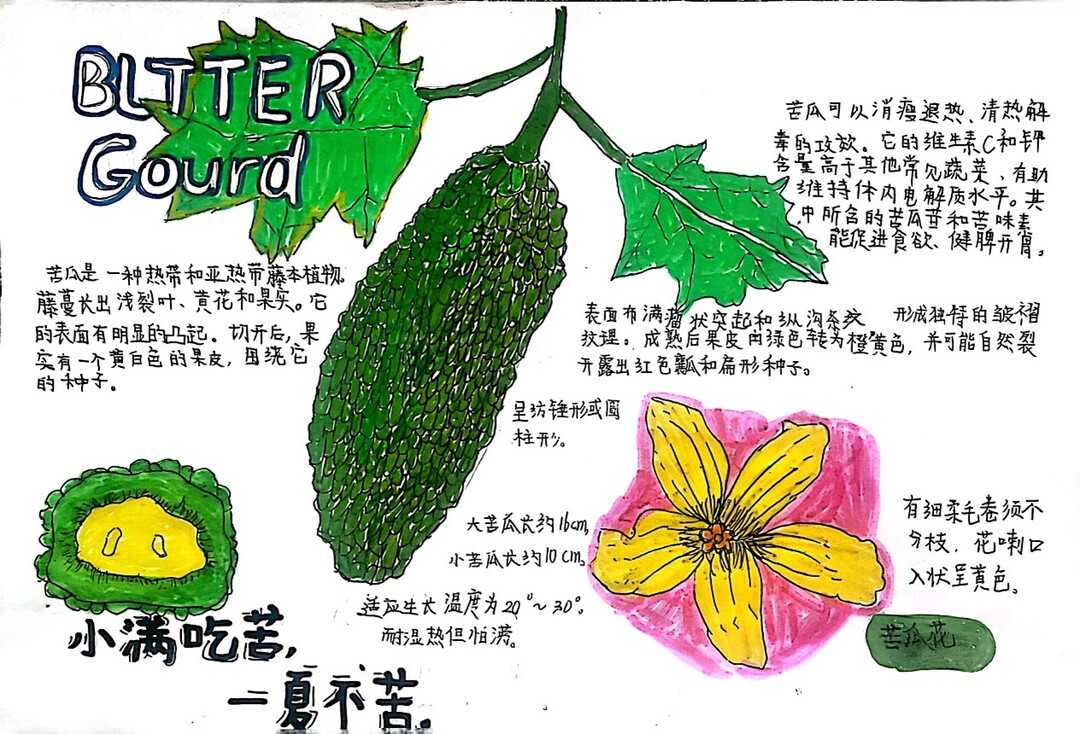 BLTTER
Gourd
苦瓜可以消瘟退热、清热解
毒的攻效。它的维生素C和钾
含量高于其他常见蔬菜,有助
维持体内电解质水平。其
中所含的苦瓜苷和苦味素
能促进食欲、健脾开胃。
苦瓜是一种热带和亚热带藤本植物。
藤蔓长出浅裂叶、黄花和果实。它
的表面有明显的凸起。切开后,果
实有一个黄白色的果皮,围绕它
的种子。
表面布满瘤状突起和纵沟条纹 形成独特的皱褶
纹理。成熟后果皮由绿色转为橙黄色,并可能自然裂
开露出红色瓤和扁形种子。
呈纺锤形或圆
柱形。
大苦瓜长约16cm,
小苦瓜长约10cm。
适应生长温度为20°~30°。
耐湿热但怕涝。
有细柔毛卷须不
分枝,花喇口
入状呈黄色。
苦瓜花
小满吃苦,
一夏不苦。